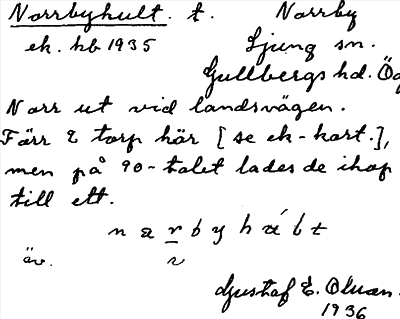 Norrbyhult. t. Norrby
ek. hb 1935 Ljung sn.
Gullbergs hd. Ög
Norr ut vid landsvägen.
Färr 2 torp här [se ek-kart.],
men på 90-talet lades de ihop
till ett.
n a r b y h
äv. r
Gustaf E. Olman.
1936